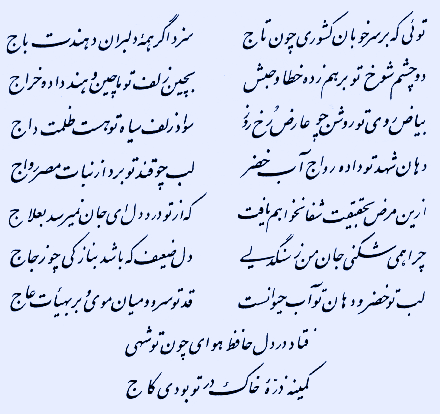 توئی که بر سر خوبان کشوری چون تاج سزد اگر همهٔ دلبران دهندت باج
دو چشم شوخ تو برهم زده خطا و حبش بچین زلف تو ماچین و هند داده خراج
بیاض روی تو روشن چو عارض رخ روز سواد زلف سیاه تو هست ظلمت داج
دهان شهد تو داده رواج آب خضر لب چو قند تو برد از نبات مصر رواج
ازین مرض بحقیقت شفا نخواهم یافت که از تو درد دل ای جان نمیرسد بعلاج
چرا همی شکنی جان من ز سنگدلی دل ضعیف که باشد بنازکی چو زجاج
لب تو خضر و دهان تو آب حیوانست قد تو سرو و میان موی و بر بهیأت عاج
فتاد در دل حافظ هوای چون تو شهی
کمینه ذرهٔ خاک در تو بودی کاج